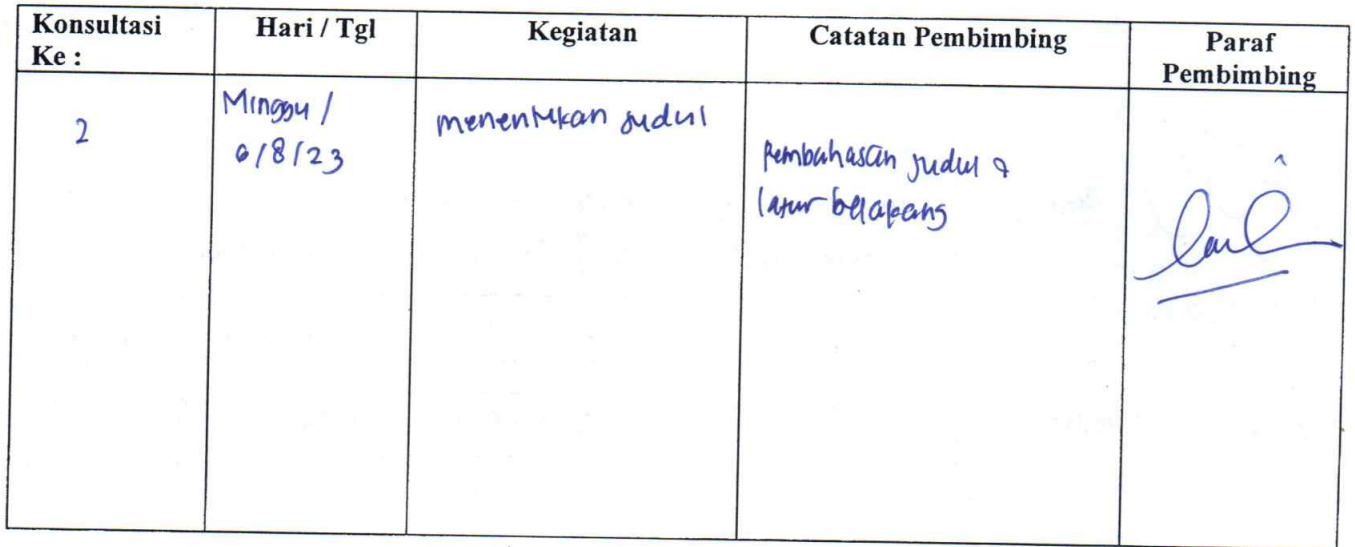 Konsultasi Ke : Hari / Tgl Kegiatan Catatan Pembimbing Paraf Pembimbing
2 Minggu / menentukan judul
6/8/23
Pembahasan judul &
latar belakang